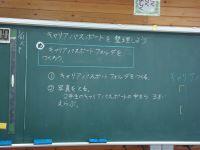 キャリアパスポートを整理しよう
キャリアパスポートフォルダを
つくろう。
① キャリアパスポートフォルダをつくる。
② 写真をとる。
2年生のキャリアパスポートの中から3まい
えらぶ。
キャリア